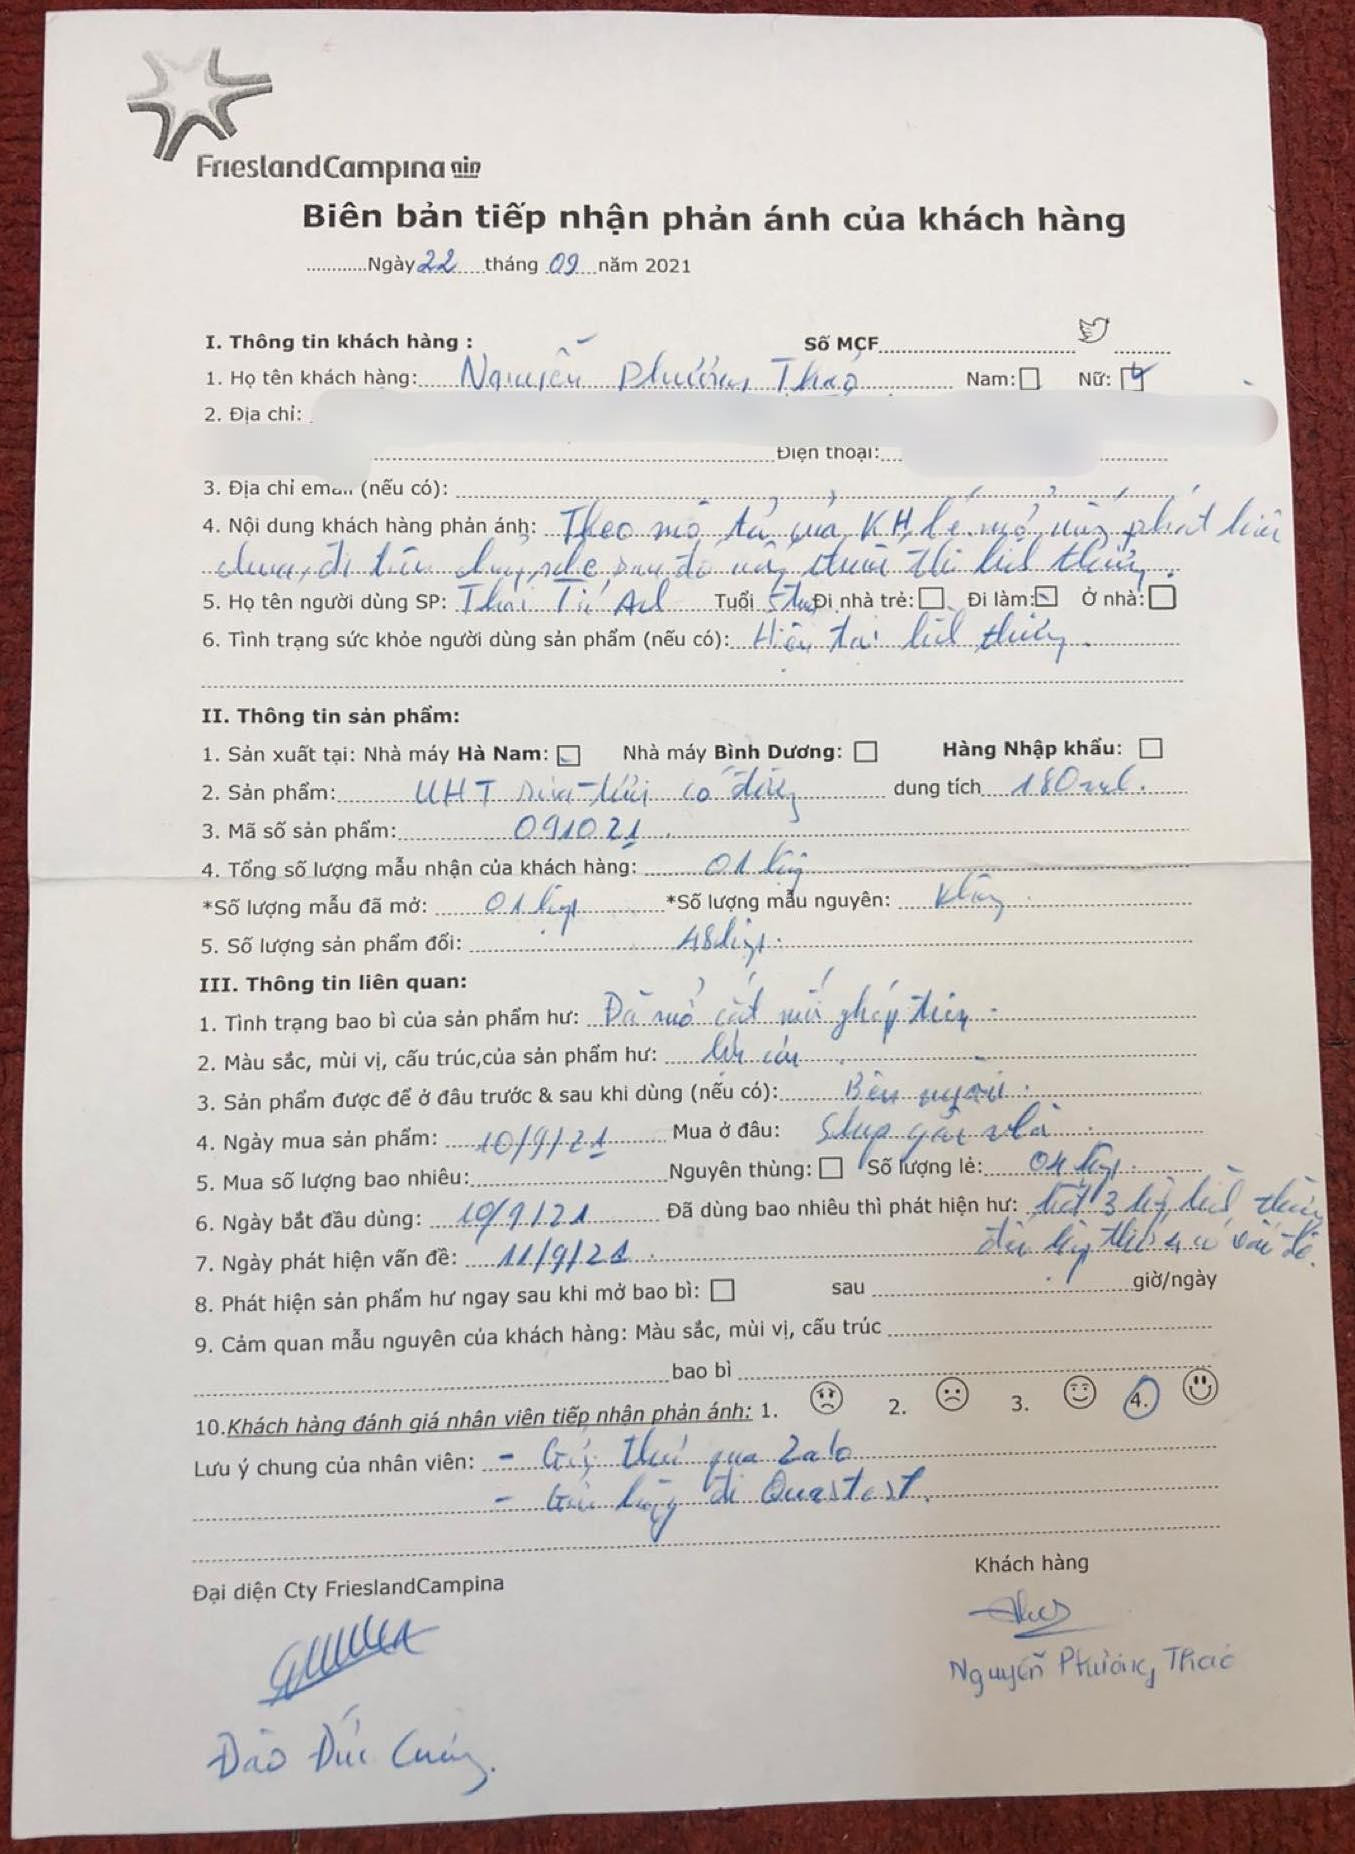 FrieslandCampina
Biên bản tiếp nhận phản ánh của khách hàng
............Ngày 22 tháng 09 năm 2021
I. Thông tin khách hàng : Số MCF
1. Họ tên khách hàng: Nguyễn Phương Thảo Nam: Nữ:
2. Địa chỉ:
Điện thoại:
3. Địa chỉ email (nếu có):
4. Nội dung khách hàng phản ánh: Theo mô tả của KH, bé mở uống phát hiện
chua, đi sau đó uống thuốc thì bình thường.
5. Họ tên người dùng SP: Thái Tú Tuổi Đi nhà trẻ: Đi làm: Ở nhà:
6. Tình trạng sức khỏe người dùng sản phẩm (nếu có): Hiện tại bình thường.
II. Thông tin sản phẩm:
1. Sản xuất tại: Nhà máy Hà Nam: Nhà máy Bình Dương: Hàng Nhập khẩu:
2. Sản phẩm: UHT có đường dung tích 180ml.
3. Mã số sản phẩm: 091021
4. Tổng số lượng mẫu nhận của khách hàng: 01 hộp
*Số lượng mẫu đã mở: 01 hộp *Số lượng mẫu nguyên: không
5. Số lượng sản phẩm đổi: 48 hộp.
III. Thông tin liên quan:
1. Tình trạng bao bì của sản phẩm hư: Đã mở cắt mối ghép
2. Màu sắc, mùi vị, cấu trúc,của sản phẩm hư:
3. Sản phẩm được để ở đâu trước & sau khi dùng (nếu có): Bên ngoài.
4. Ngày mua sản phẩm: 10/9/21 Mua ở đâu: Shop gần nhà
5. Mua số lượng bao nhiêu: Nguyên thùng: Số lượng lẻ: hộp.
6. Ngày bắt đầu dùng: 10/9/21 Đã dùng bao nhiêu thì phát hiện hư: hết 3 hộp bình thường
7. Ngày phát hiện vấn đề: 11/9/21. đến hộp thứ 4 có vấn đề.
8. Phát hiện sản phẩm hư ngay sau khi mở bao bì: sau giờ/ngày
9. Cảm quan mẫu nguyên của khách hàng: Màu sắc, mùi vị, cấu trúc
bao bì
10.Khách hàng đánh giá nhân viên tiếp nhận phản ánh: 1. 2. 3. 4.
Lưu ý chung của nhân viên: - Gửi thư qua Zalo
- Gửi đi Quastest.
Đại diện Cty FrieslandCampina Khách hàng
Nguyễn Phương Thảo
Đào Đức Cường